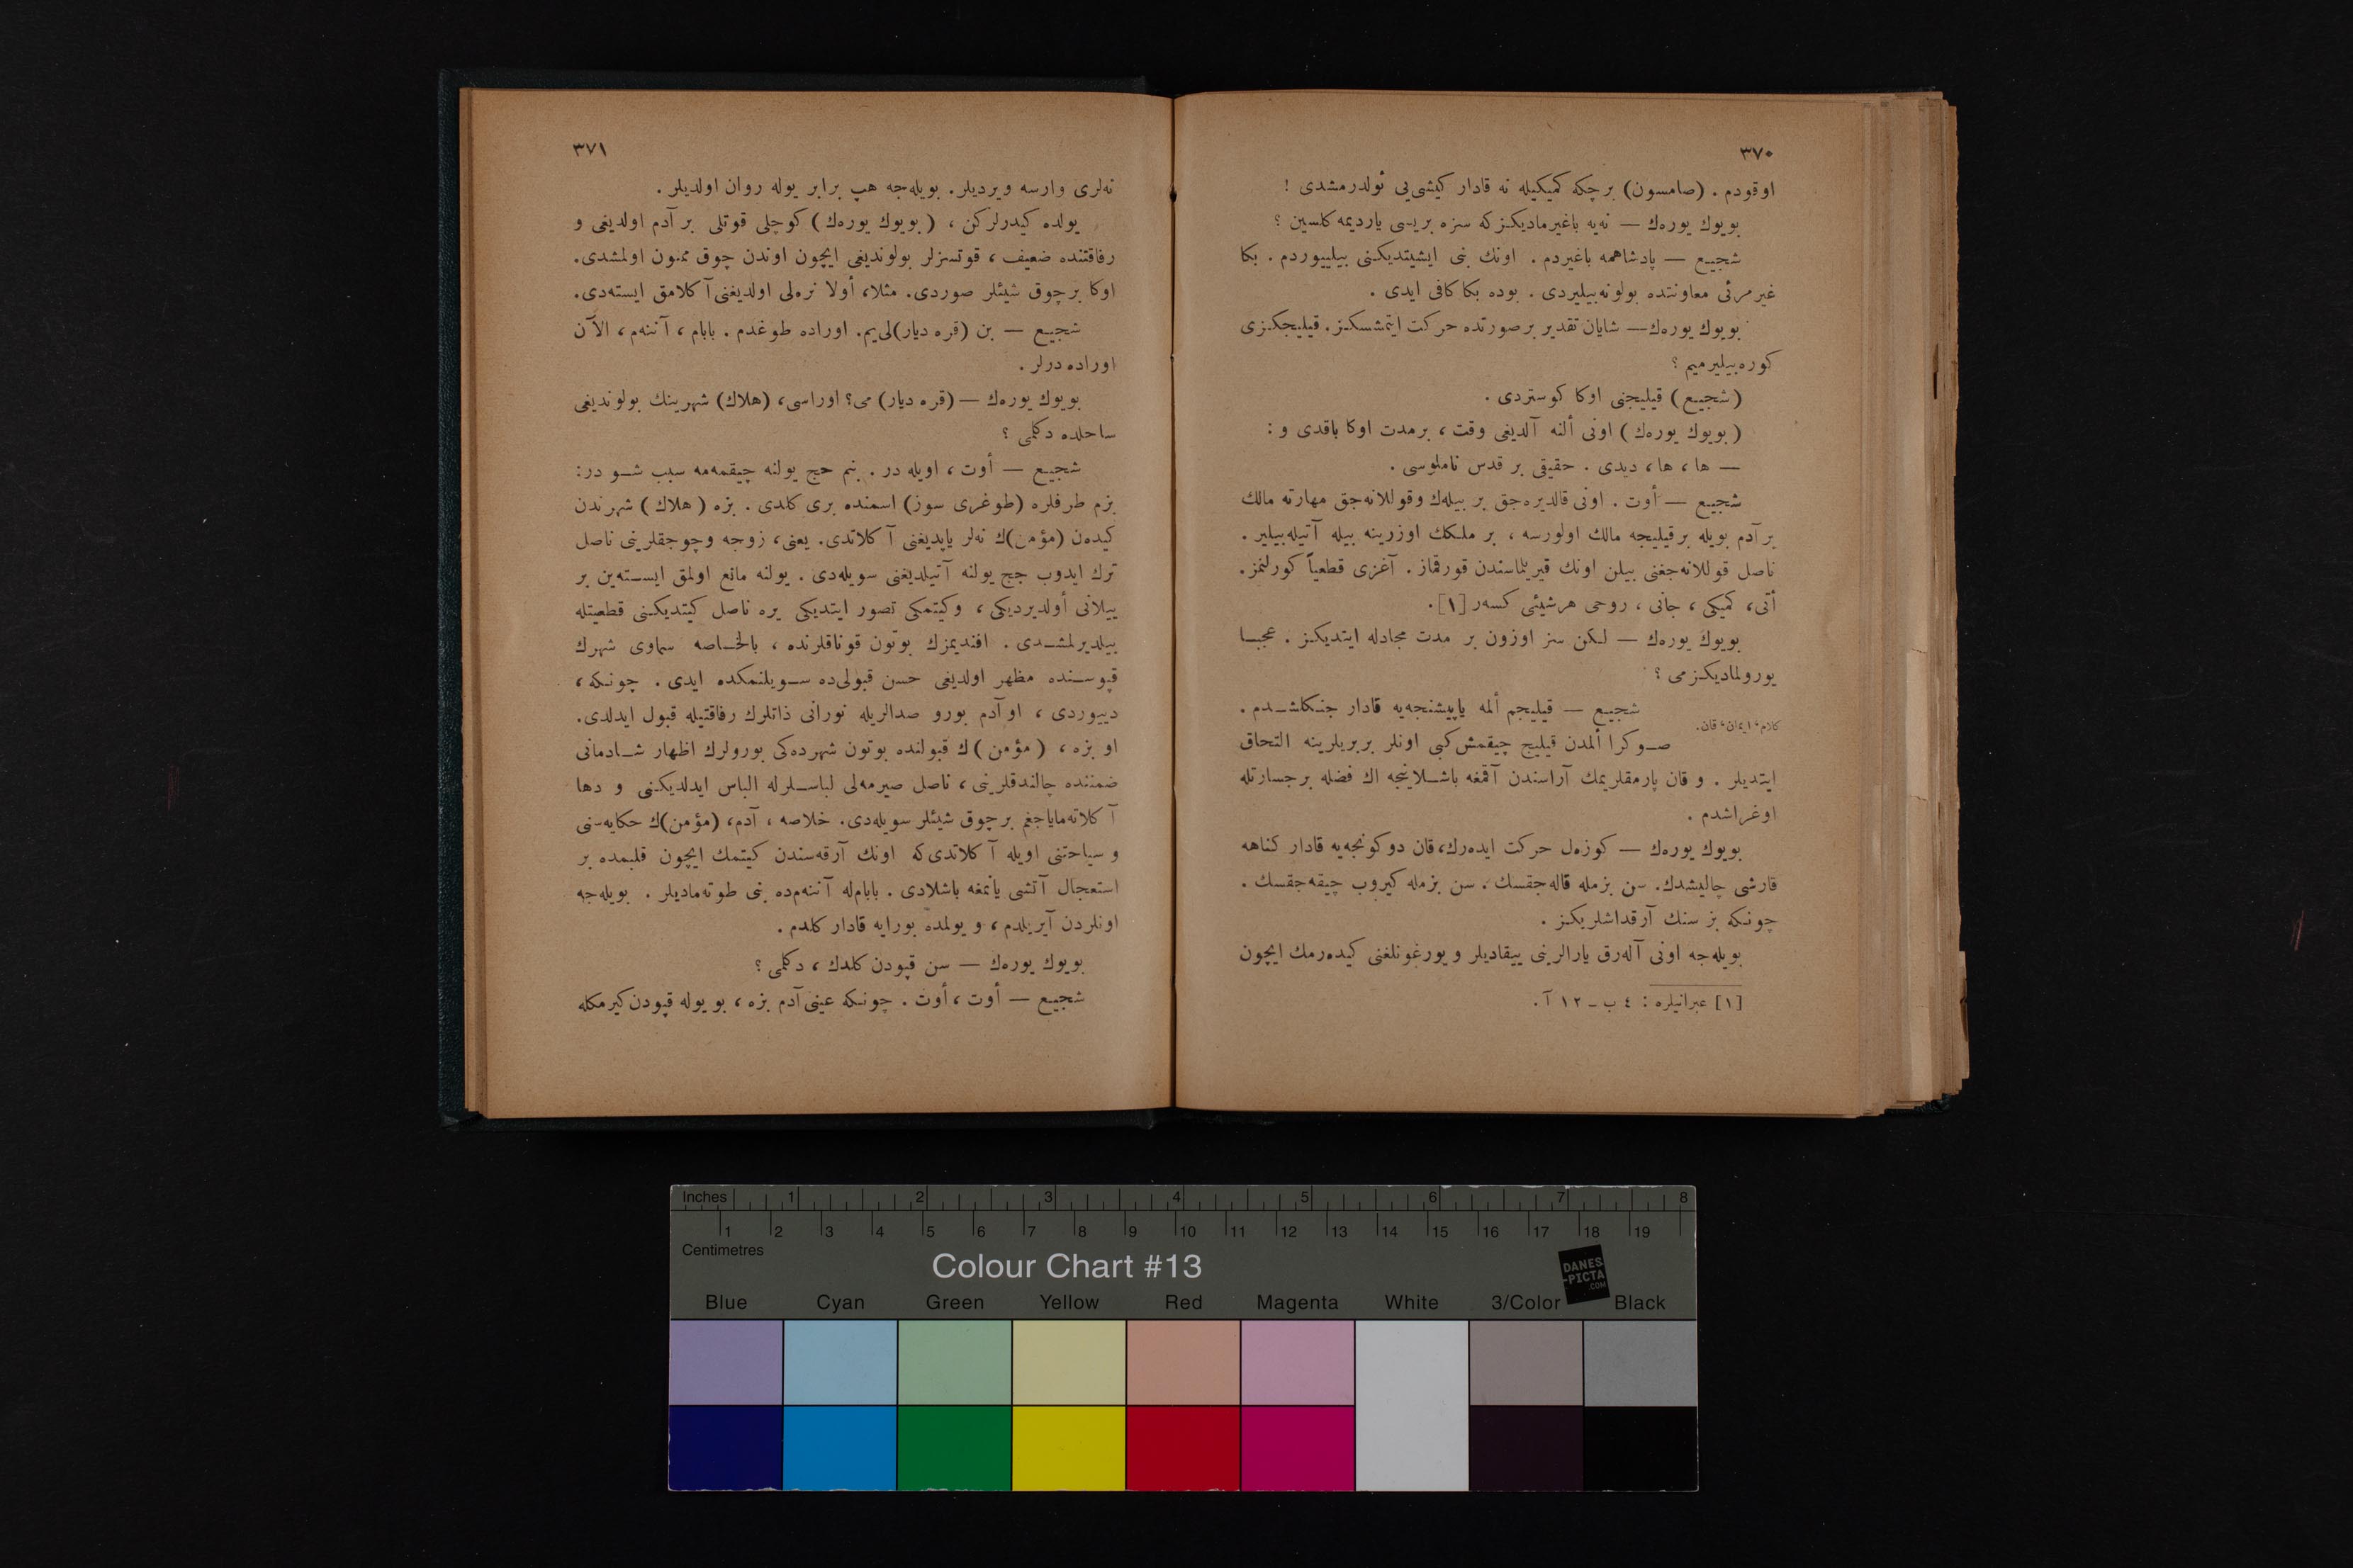 ٣٧٠
اوقودم . (صامسون) بر چكه كميكيله نه قادار كيشى‌يى ئولدرمشدى !
بويوك يوره‌ك — نه‌يه باغيرماديكـزكه سزه بريسى يارديمه كلسين ؟
شجيـع — پادشاهمه باغيردم . اونك بنى ايشيتديكـنى بيلييوردم . بكا
غير مرئى معاونتده بولونه‌بيليردى . بوده بكا كافى ايدى .
بويوك يوره‌ك — شايان تقدير بر صورتده حركت ايتمشسكـز . قيليجكـزى
كوره‌بيليرميم ؟
(شجيـع) قيليجنى اوكا كوستردى .
(بويوك يوره‌ك) اونى ألنه آلديغى وقت ، بر مدت اوكا باقدى و :
— ها ، ها ، ديدى . حقيقى بر قدس ناملوسى .
شجيـع — أوت . اونى قالديره‌جق بر بيله‌ك وقوللانه‌جق مهارته مالك
بر آدم بويله بر قيليجه مالك اولورسه ، بر ملـكك اوزرينه بيله آتيله‌بيلير .
ناصل قوللانه‌جغنى بيلن اونك قيريلماسندن قورقماز . آغزى قطعياً كورلنمز .
أتى ، كميكى ، جانى ، روحى هرشيئى كسه‌ر [١] .
بويوك يوره‌ك — لـكن سز اوزون بر مدت مجادله ايتديكـز . عجبـا
يورولماديكـزمى ؟
شجيـع — قيليجم ألمه ياپيشنجه‌يه قادار جنـكلشـدم .
كلام ، ايمان ، قان .
صـوكرا ألمدن قيليج چيقمش كبى اونلر بربرلرينه التحاق
ايتديلر . و قان پارمقلريمك آراسندن آقمغه باشـلاينجه اك فضله بر جسارتله
اوغراشدم .
بويوك يوره‌ك — كوزه‌ل حركت ايده‌رك ، قان دوكونجه‌يه قادار كناهه
قارشى چاليشدك . سن بزمله قاله‌جقسك . سن بزمله كيروب چيقه‌جقسك .
چونـكه بز سنك آرقداشلريكـز .
بويله‌جه اونى آله‌رق يارالرينى ييقاديلر و يورغونلغنى كيده‌رمك ايچون
[١] عبرانيلره : ٤ ب ـ ١٢ آ .
٣٧١
نه‌لرى وارسه ويرديلر . بويله‌جه هپ برابر يوله روان اولديلر .
يولده كيدرلركن ، (بويوك يوره‌ك) كوچلى قوتلى بر آدم اولديغى و
رفاقتنده ضعيف ، قوتسزلر بولونديغى ايچون اوندن چوق ممنون اولمشدى .
اوكا بر چوق شيئلر صوردى . مثلا ، أولا نره‌لى اولديغنى آكلامق ايسته‌دى .
شجيـع — بن (قره ديار)لى‌يم . اوراده طوغدم . بابام ، آننه‌م ، الآن
اوراده درلر .
بويوك يوره‌ك — (قره ديار) مى؟ اوراسى ، (هلاك) شهرينك بولونديغى
ساحلده دكلمى ؟
شجيـع — أوت ، اويله در . بنم حج يولنه چيقمه‌مه سبب شـو در :
بزم طرفلره (طوغرى سوز) اسمنده برى كلدى . بزه (هلاك) شهرندن
كيده‌ن (مؤمن)ك نه‌لر ياپديغنى آكلاتدى . يعنى ، زوجه وچوجقلرينى ناصل
ترك ايدوب حج يولنه آتيلديغنى سويله‌دى . يولنه مانع اولمق ايسـته‌ين بر
ييلانى أولديرديكى ، وكيتمكى تصور ايتديكى يره ناصل كيتديكـنى قطعيتله
بيلديرلمشـدى . افنديمزك بوتون قوناقلرنده ، بالخـاصه سماوى شهرك
قپوسـنده مظهر اولديغى حسن قبولى‌ده سـويلنمكده ايدى . چونـكه ،
دييوردى ، او آدم بورو صدالريله نورانى ذاتلرك رفاقتيله قبول ايدلدى .
او بزه ، (مؤمن)ك قبولنده بوتون شهرده‌كى بورولرك اظهار شـادمانى
ضمننده چالندقلرينى ، ناصل صيرمه‌لى لباسـلرله الباس ايدلديكـنى و دها
آكلاته‌ماياجغم بر چوق شيئلر سويله‌دى . خلاصه ، آدم ، (مؤمن)ك حكايه‌سنى
و سياحتنى اويله آكلاتدى‌كه اونك آرقه‌سندن كيتمك ايچون قلبمده بر
استعجال آتشى يانمغه باشلادى . بابامله آننه‌م‌ده بنى طوته‌ماديلر . بويله‌جه
اونلردن آيريلدم ، و يولمده بورايه قادار كلدم .
بويوك يوره‌ك — سن قپودن كلدك ، دكلمى ؟
شجيـع — أوت ، أوت . چونـكه عينى آدم بزه ، بو يوله قپودن كيرمكله
Inches 1 2 3 4 5 6 7 8
1 2 3 4 5 6 7 8 9 10 11 12 13 14 15 16 17 18 19
Centimetres
Colour Chart #13
DANES
-PICTA
.COM
Blue Cyan Green Yellow Red Magenta White 3/Color Black